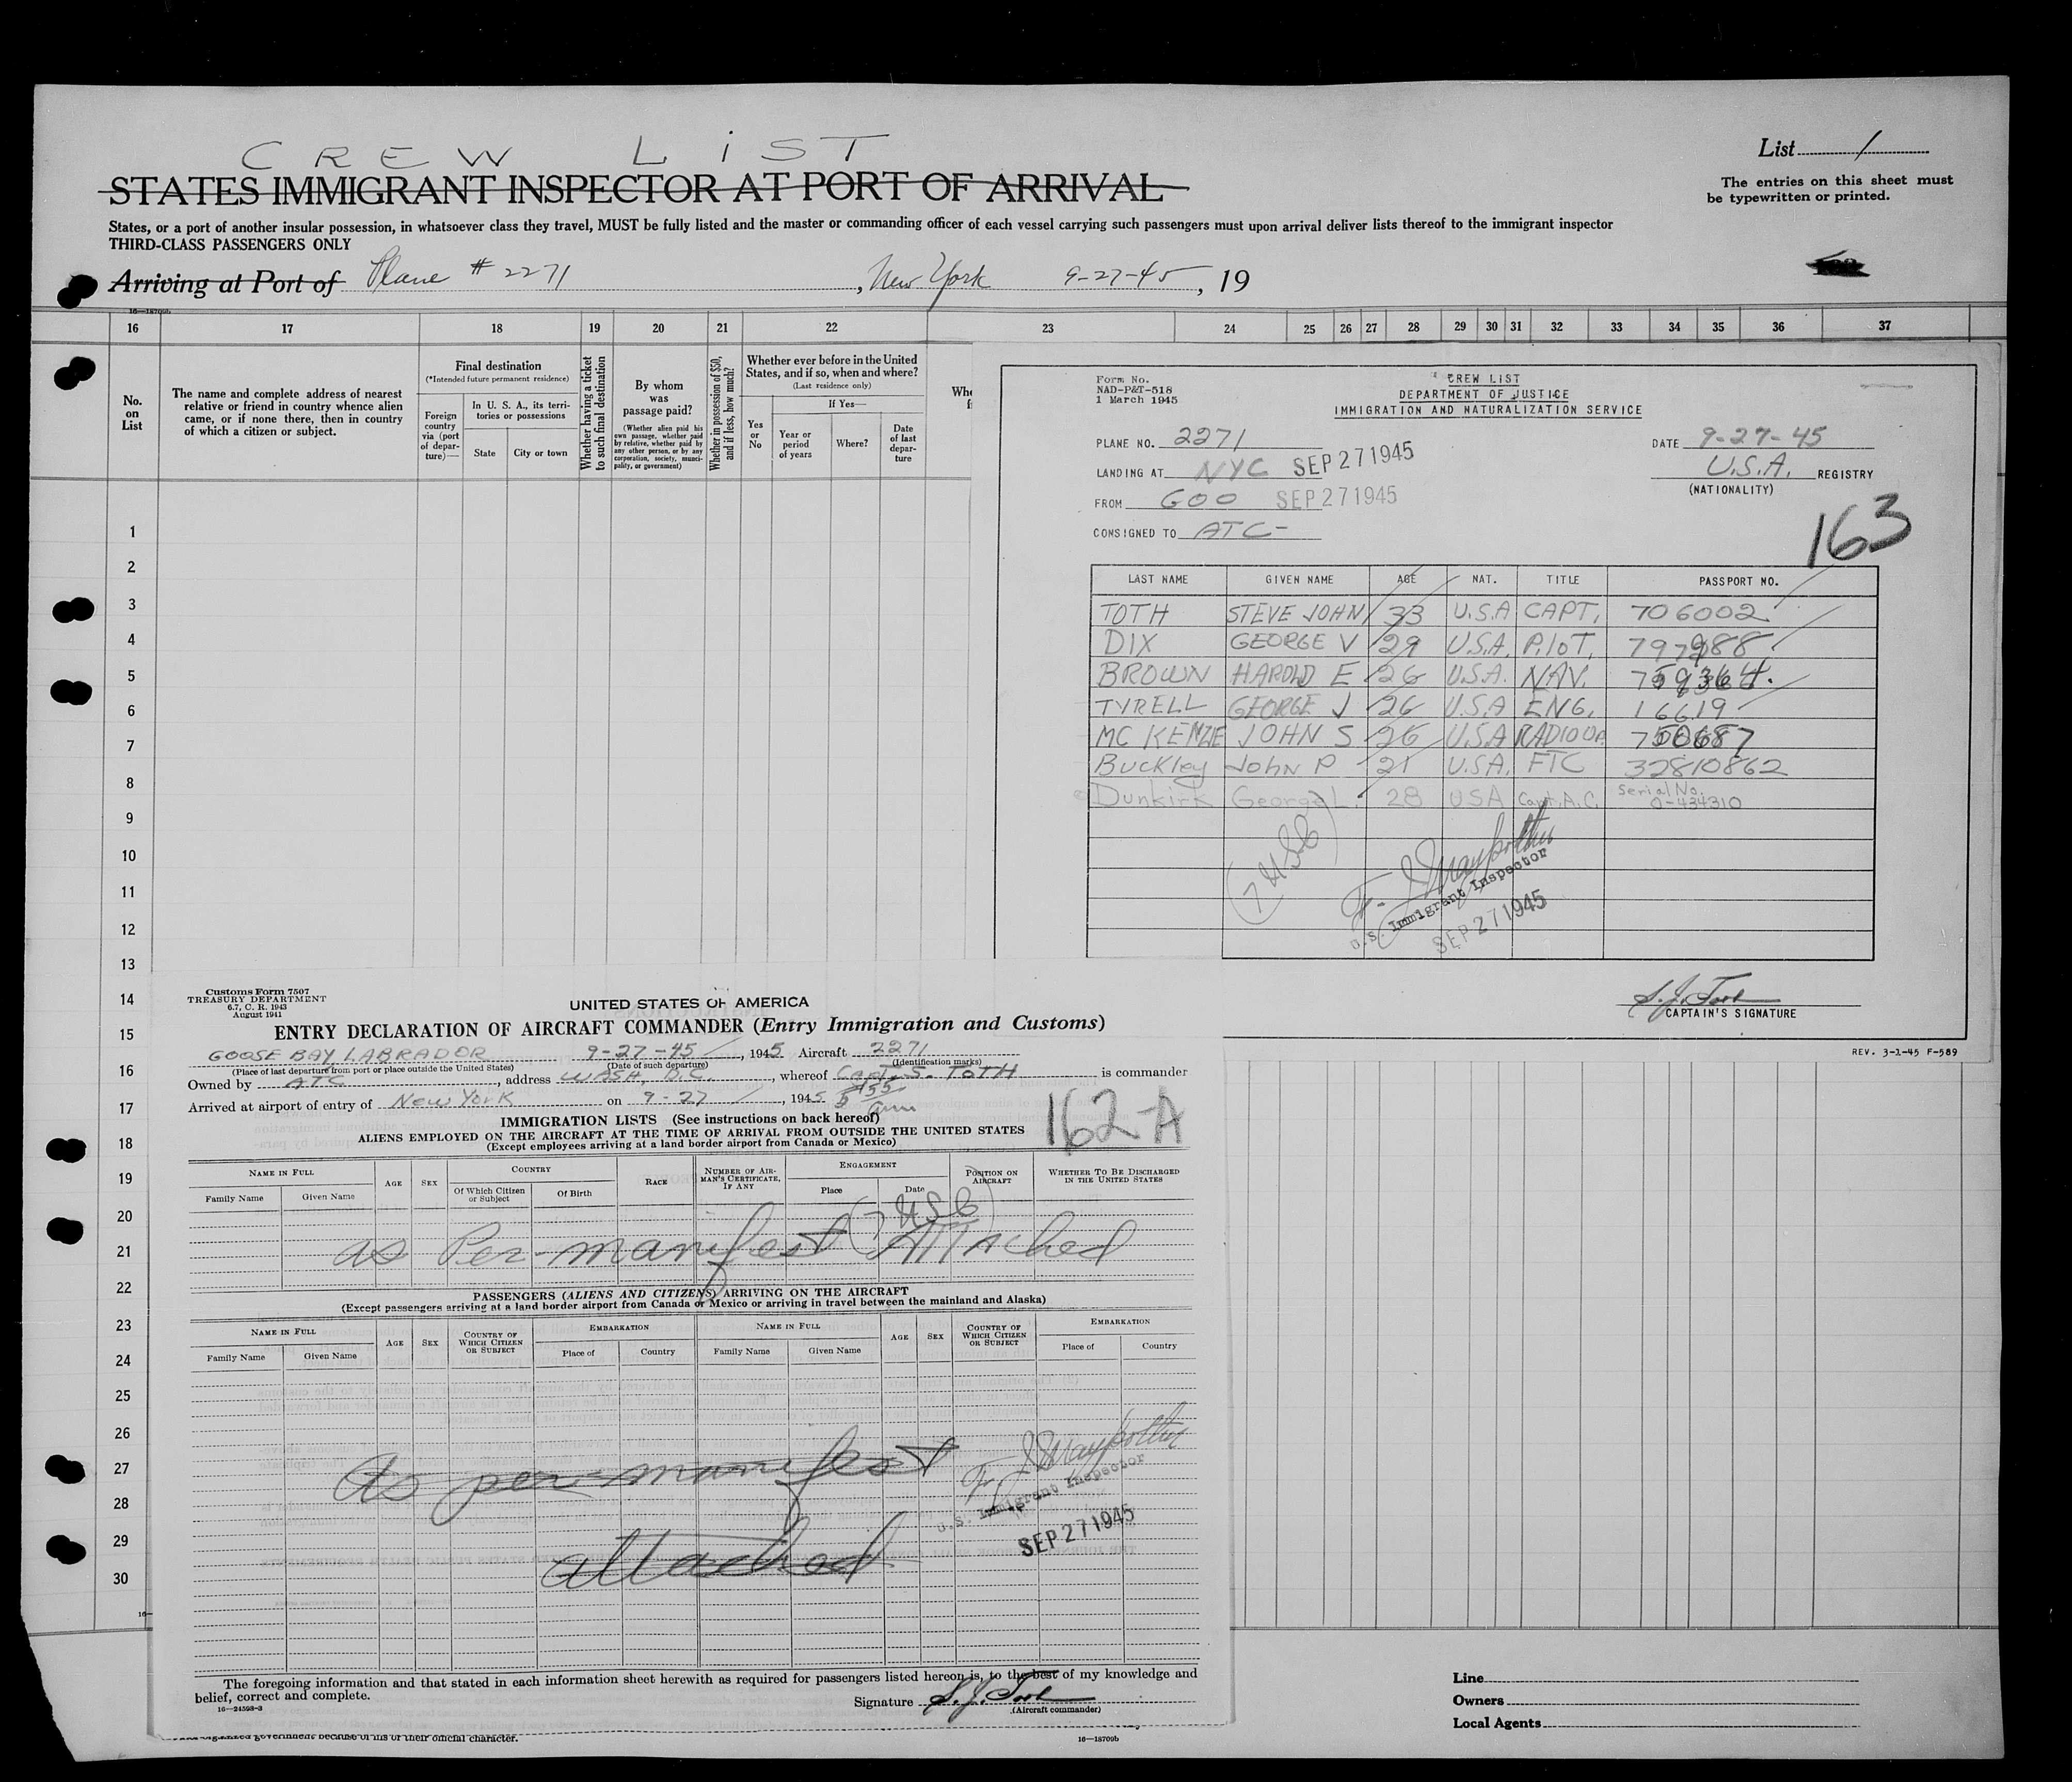 CREW LIST
STATES IMMIGRANT INSPECTOR AT PORT OF ARRIVAL
List 1
The entries on this sheet must
be typewritten or printed.
States, or a port of another insular possession, in whatsoever class they travel, MUST be fully listed and the master or commanding officer of each vessel carrying such passengers must upon arrival deliver lists thereof to the immigrant inspector
THIRD-CLASS PASSENGERS ONLY
Arriving at Port of Plane # 2271, New York 9-27-45, 19
16—18709b
16 17 18 19 20 21 22 23 24 25 26 27 28 29 30 31 32 33 34 35 36 37
No. on List
The name and complete address of nearest relative or friend in country whence alien came, or if none there, then in country of which a citizen or subject.
Final destination
(*Intended future permanent residence)
Foreign country via (port of departure)—
In U. S. A., its territories or possessions
State
City or town
Whether having a ticket to such final destination
By whom was passage paid?
(Whether alien paid his own passage, whether paid by relative, whether paid by any other person, or by any corporation, society, municipality, or government)
Whether in possession of $50, and if less, how much?
Whether ever before in the United States, and if so, when and where?
(Last residence only)
Yes or No
If Yes—
Year or period of years
Where?
Date of last departure
1
2
3
4
5
6
7
8
9
10
11
12
13
14
15
16
17
18
19
20
21
22
23
24
25
26
27
28
29
30
Form No.
NAD-P&T-518
1 March 1945
CREW LIST
DEPARTMENT OF JUSTICE
IMMIGRATION AND NATURALIZATION SERVICE
PLANE NO. 2271
DATE 9-27-45
LANDING AT NYC SEP 27 1945
U.S.A. REGISTRY
(NATIONALITY)
FROM GOO SEP 27 1945
CONSIGNED TO ATC-
163
LAST NAME GIVEN NAME AGE NAT. TITLE PASSPORT NO.
TOTH STEVE JOHN 33 U.S.A CAPT. 706002
DIX GEORGE V 29 U.S.A. PILOT. 797988
BROWN HAROLD E 26 U.S.A. NAV.
TYRELL GEORGE J 26 U.S.A ENG. 16619
MC KENZIE JOHN S 26 U.S.A RADIO OP.
Buckley John P 21 U.S.A. FTC 32810862
Dunkirk George L. 28 USA Capt. A.C. Serial No. O-434310
(7 USC)
U.S. Immigrant Inspector
SEP 27 1945
S.J. Toth
CAPTAIN'S SIGNATURE
REV. 3-1-45 F-589
Customs Form 7507
TREASURY DEPARTMENT
6.7, C. R. 1943
August 1941
UNITED STATES OF AMERICA
ENTRY DECLARATION OF AIRCRAFT COMMANDER (Entry Immigration and Customs)
GOOSE BAY, LABRADOR 9-27-45, 1945 Aircraft 2271
(Place of last departure from port or place outside the United States) (Date of such departure) (Identification marks)
Owned by ATC, address WASH, D.C., whereof CAPT. S. TOTH is commander
Arrived at airport of entry of New York on 9-27, 1945
162-A
IMMIGRATION LISTS (See instructions on back hereof)
ALIENS EMPLOYED ON THE AIRCRAFT AT THE TIME OF ARRIVAL FROM OUTSIDE THE UNITED STATES
(Except employees arriving at a land border airport from Canada or Mexico)
NAME IN FULL
Family Name Given Name
AGE SEX
COUNTRY
Of Which Citizen or Subject
Of Birth
RACE
NUMBER OF AIRMAN'S CERTIFICATE, IF ANY
ENGAGEMENT
Place Date
POSITION ON AIRCRAFT
WHETHER TO BE DISCHARGED IN THE UNITED STATES
(7 USC)
as Per-manifest Attached
PASSENGERS (ALIENS AND CITIZENS) ARRIVING ON THE AIRCRAFT
(Except passengers arriving at a land border airport from Canada or Mexico or arriving in travel between the mainland and Alaska)
NAME IN FULL AGE SEX COUNTRY OF WHICH CITIZEN OR SUBJECT EMBARKATION NAME IN FULL AGE SEX COUNTRY OF WHICH CITIZEN OR SUBJECT EMBARKATION
Family Name Given Name Place of Country Family Name Given Name Place of Country
As per-manifest
attached
U.S. Immigrant Inspector
SEP 27 1945
The foregoing information and that stated in each information sheet herewith as required for passengers listed hereon is, to the best of my knowledge and
belief, correct and complete.
16—24598-3
Signature S.J. Toth
(Aircraft commander)
16—18709b
Line
Owners
Local Agents